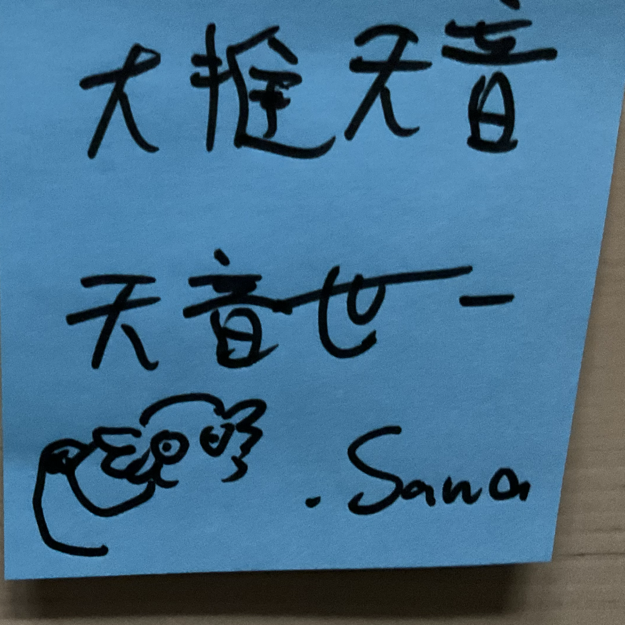 大推天音
天音世一
. Sana